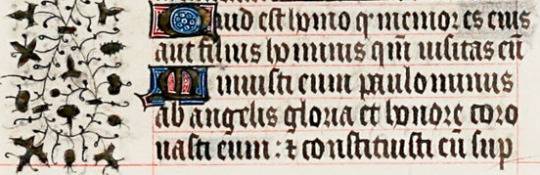 Quid est homo qr memor es eius
aut filius hominis qm̄ uisitas eū
Minuisti eum paulominus
ab angelis gloria et honore coro
nasti eum : ⁊ constituisti eū sup